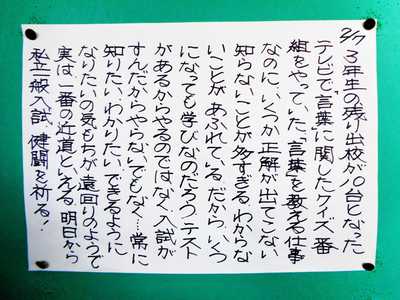 2/7 3年生の残り出校が10台となった
テレビで"言葉"に関したクイズ番
組をやっていた。"言葉"を教える仕事
なのに、いくつか正解が出てこない
知らないことが多すぎる。わからな
いことが、あふれている。だから、いくつ
になっても学びなのだろう。テスト
があるからやるのではなく、入試が
すんだからやらないでもなく…常に
知りたい・わかりたい・できるように
なりたいの気もちが遠回りのようで
実は一番の近道といえる。明日から
私立一般入試、健闘を祈る!